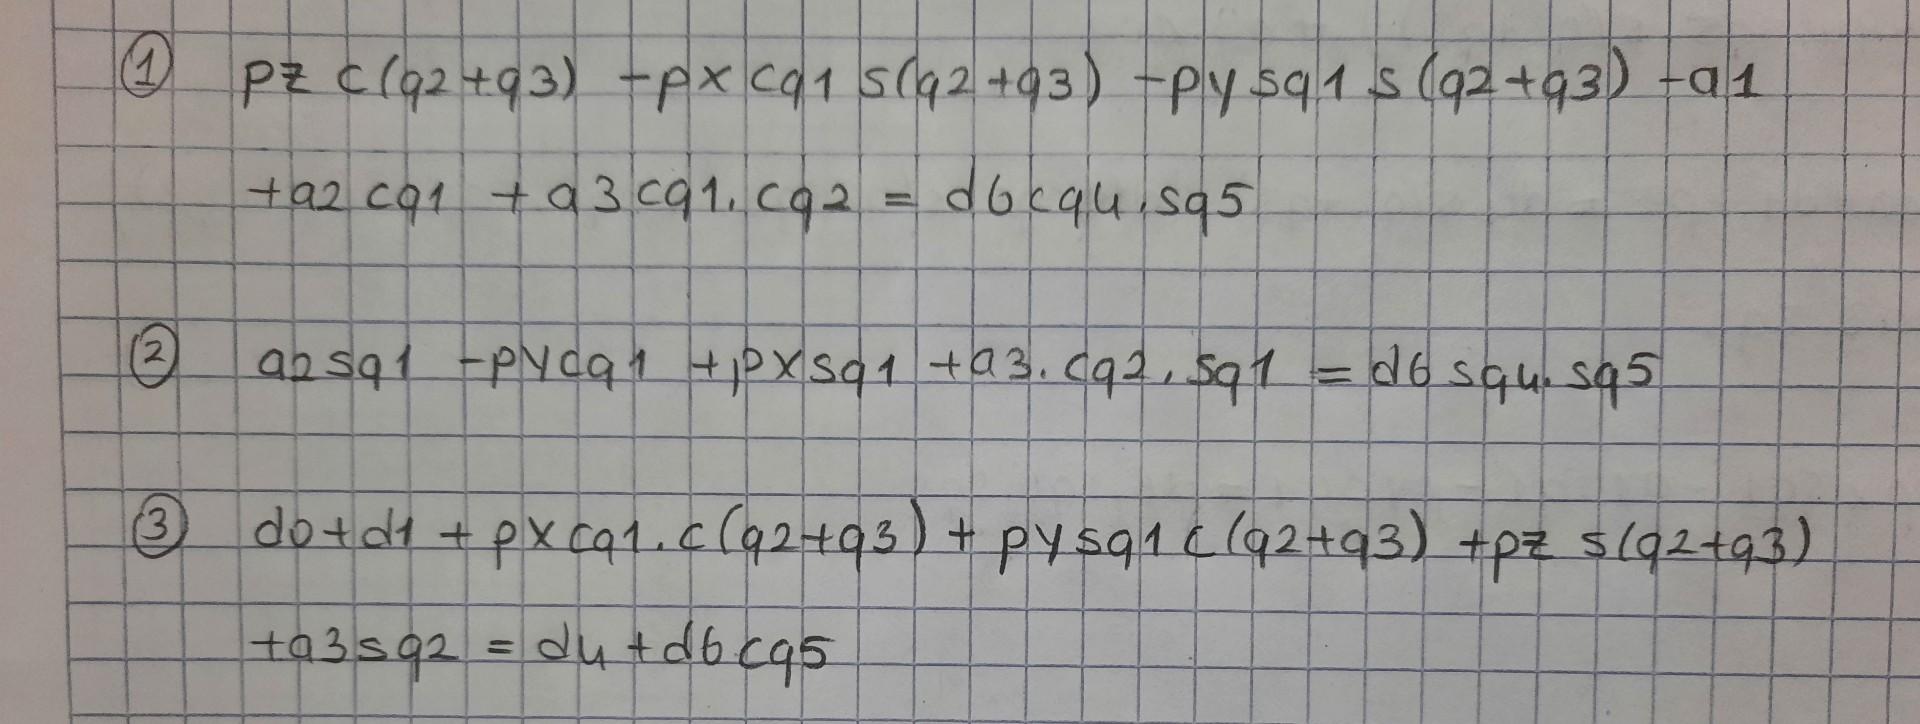 ① pz c(q2+q3) -px cq1 s(q2+q3) -py sq1 s(q2+q3) -a1
+a2 cq1 + a3 cq1. cq2 = d6 cq4 . sq5
② a2 sq1 -py cq1 +px sq1 +a3. cq2. sq1 = d6 sq4. sq5
③ d0+d1 + px cq1. c(q2+q3) + py sq1 c(q2+q3) +pz s(q2+q3)
+a3 sq2 = d4 + d6 cq5